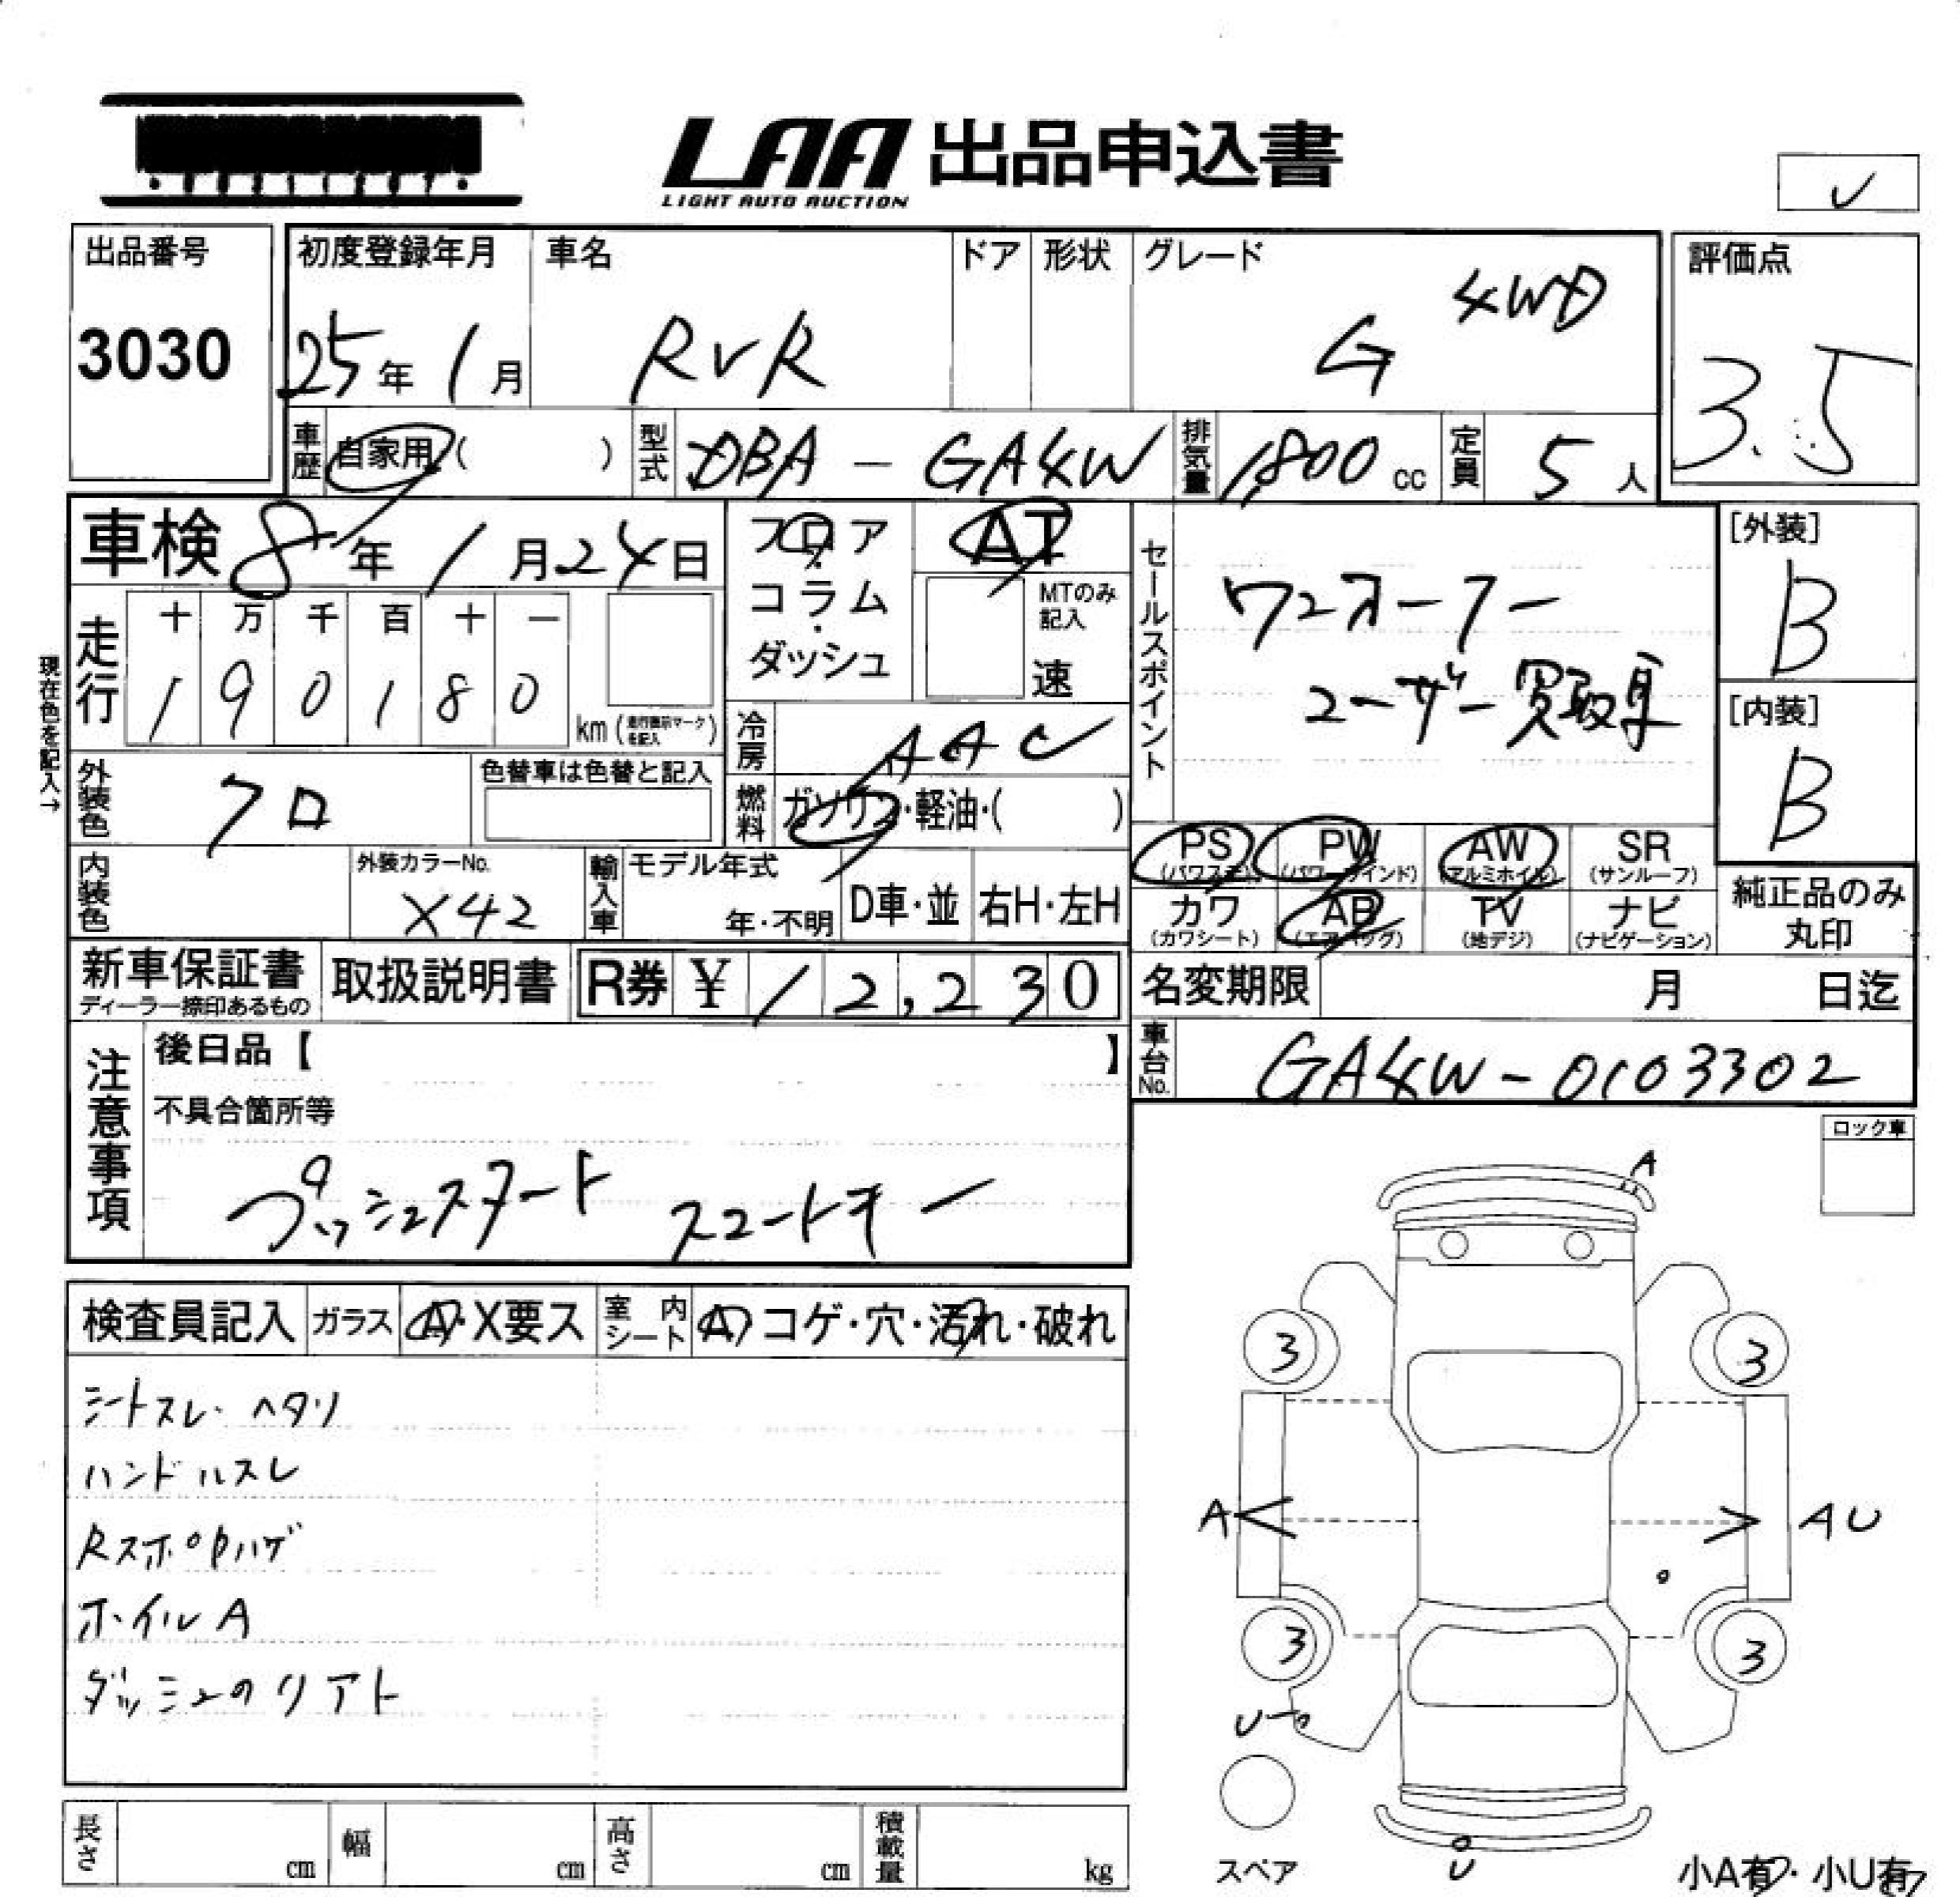 LAA 出品申込書
LIGHT AUTO AUCTION
出品番号
3030
初度登録年月
25年 1月
車名
RVR
ドア
形状
グレード
G 4WD
評価点
3.5
車歴 自家用 ( )
型式 DBA - GA4W
排気量 1,800 cc
定員 5 人
車検 8年 1月24日
走行
十 万 千 百 十 一
1 9 0 1 8 0
km (走行表示マークを記入)
現在色を記入→
フロア
・
コラム
・
ダッシュ
AT
MTのみ
記入
速
冷房 AAC
燃料 ガソリン・軽油・( )
セールスポイント
ワンオーナー
ユーザー買取車
[外装]
B
[内装]
B
外装色 クロ
色替車は色替と記入
内装色
外装カラーNo.
X42
輸入車
モデル年式
年・不明
D車・並
右H・左H
PS
(パワステ)
PW
(パワーウインド)
AW
(アルミホイル)
SR
(サンルーフ)
カワ
(カワシート)
AB
(エアバッグ)
TV
(地デジ)
ナビ
(ナビゲーション)
純正品のみ
丸印
新車保証書
ディーラー捺印あるもの
取扱説明書
R券 ¥ 12,230
名変期限 月 日迄
車台No. GA4W-0103302
注意事項
後日品【 】
不具合箇所等
プッシュスタート スマートキー
ロック車
検査員記入
ガラス A・X要ス
室内シート A コゲ・穴・汚れ・破れ
シートスレ・ヘタリ
ハンドルスレ
Rスポロハゲ
ホイルA
ダッシュのリアト
A
3
3
A
AU
3
3
U
U
スペア
小A有・小U有
長さ cm
幅 cm
高さ cm
積載量 kg